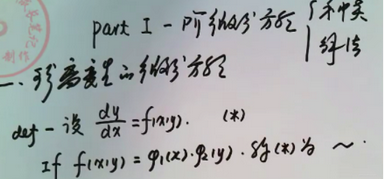 part I - 一阶微分方程 { 种类
解法
一、可分离变量的微分方程
def - 设 dy/dx = f(x,y). (*)
If f(x,y) = φ₁(x)·φ₂(y). 则(*)为 ~.